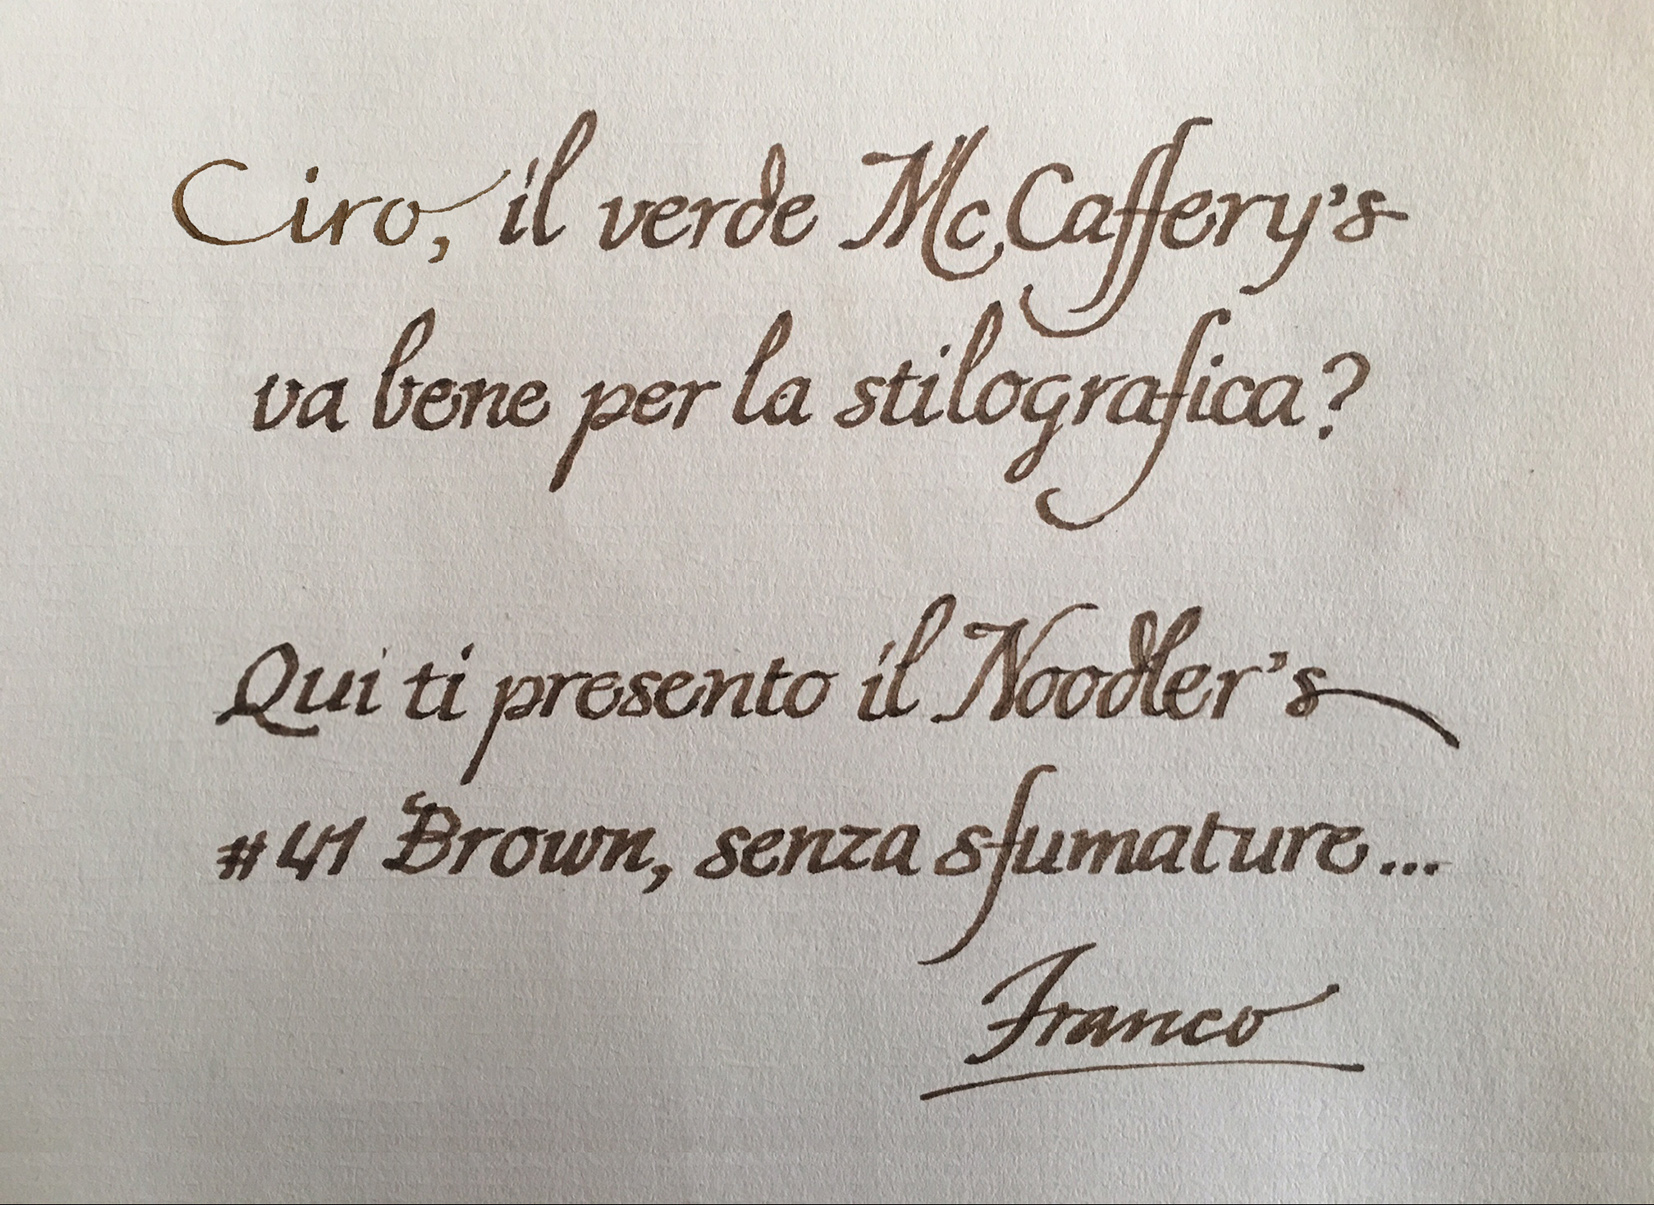 Ciro, il verde McCaffery's
va bene per la stilografica?
Qui ti presento il Noodler's
#41 Brown, senza sfumature...
Franco